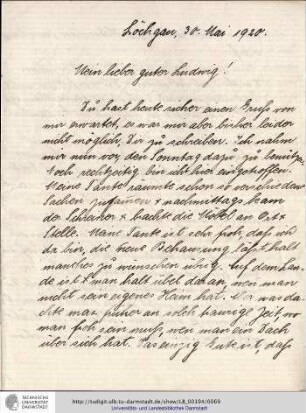 Löchgau, 30. Mai 1920.
Mein lieber guter Ludwig!
Du hast heute sicher einen Gruß von
mir erwartet, es war mir aber bisher leider
nicht möglich, Dir zu schreiben. Ich nahm
mir nun vor, den Sonntag dazu zu benützen.
Noch rechtzeitig bin ich hier eingetroffen.
Meine Tante räumte schon so verschiedene
Sachen zusammen & nachmittags kam
der Schreiner & machte die Möbel an Ort &
Stelle. Meine Tante ist sehr froh, daß ich
da bin, die neue Behausung läßt halt
manches zu wünschen übrig. Auf dem Lan-
de ist man halt übel daran, wenn man
nicht sein eigenes Heim hat. Wer
dachte früher an solch traurige Zeit, wo
man froh sein muß, wenn man ein Dach
über sich hat. Das einzig Gute ist, daß
TECHNISCHE
UNIVERSITÄT
DARMSTADT
http://tudigit.ulb.tu-darmstadt.de/show/LB_00394/0069
Universitäts- und Landesbibliothek Darmstadt